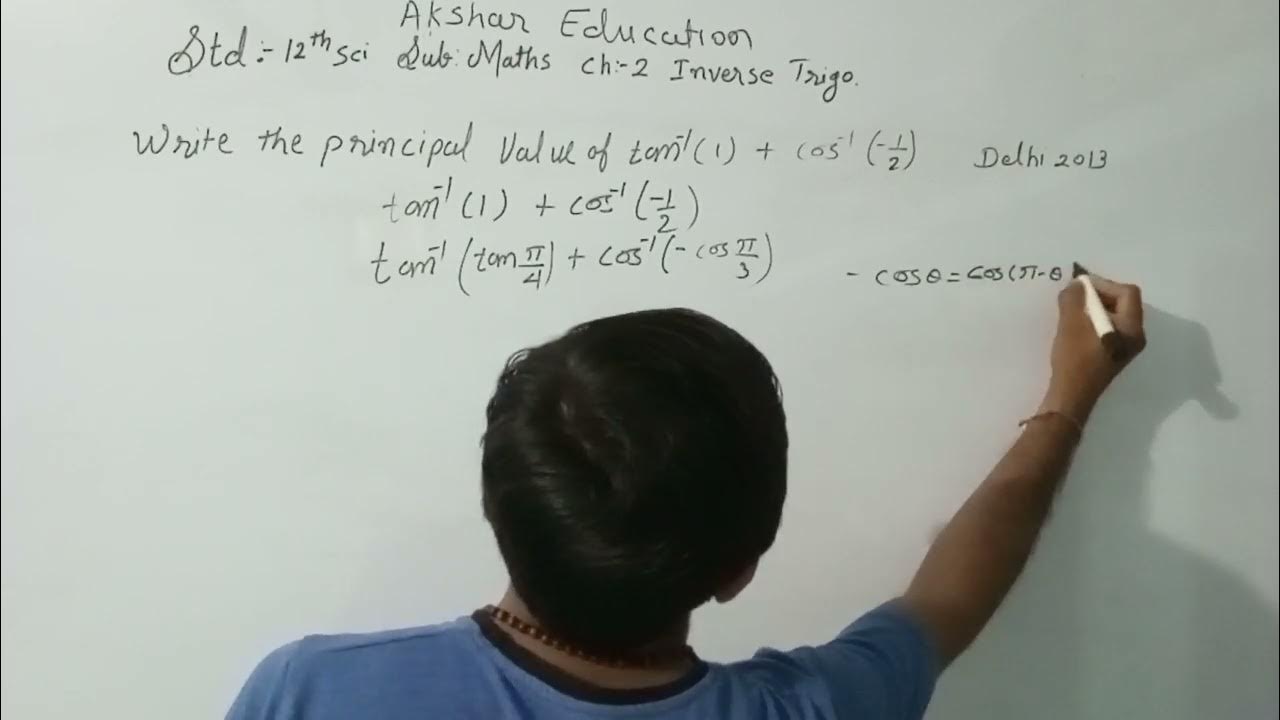 Akshar Education
Std :- 12th Sci Sub: Maths Ch:-2 Inverse Trigo.
Write the principal Value of tan⁻¹(1) + cos⁻¹(-1/2) Delhi 2013
tan⁻¹(1) + cos⁻¹(-1/2)
tan⁻¹(tan π/4) + cos⁻¹(-cos π/3) - cosθ = cos(π-θ